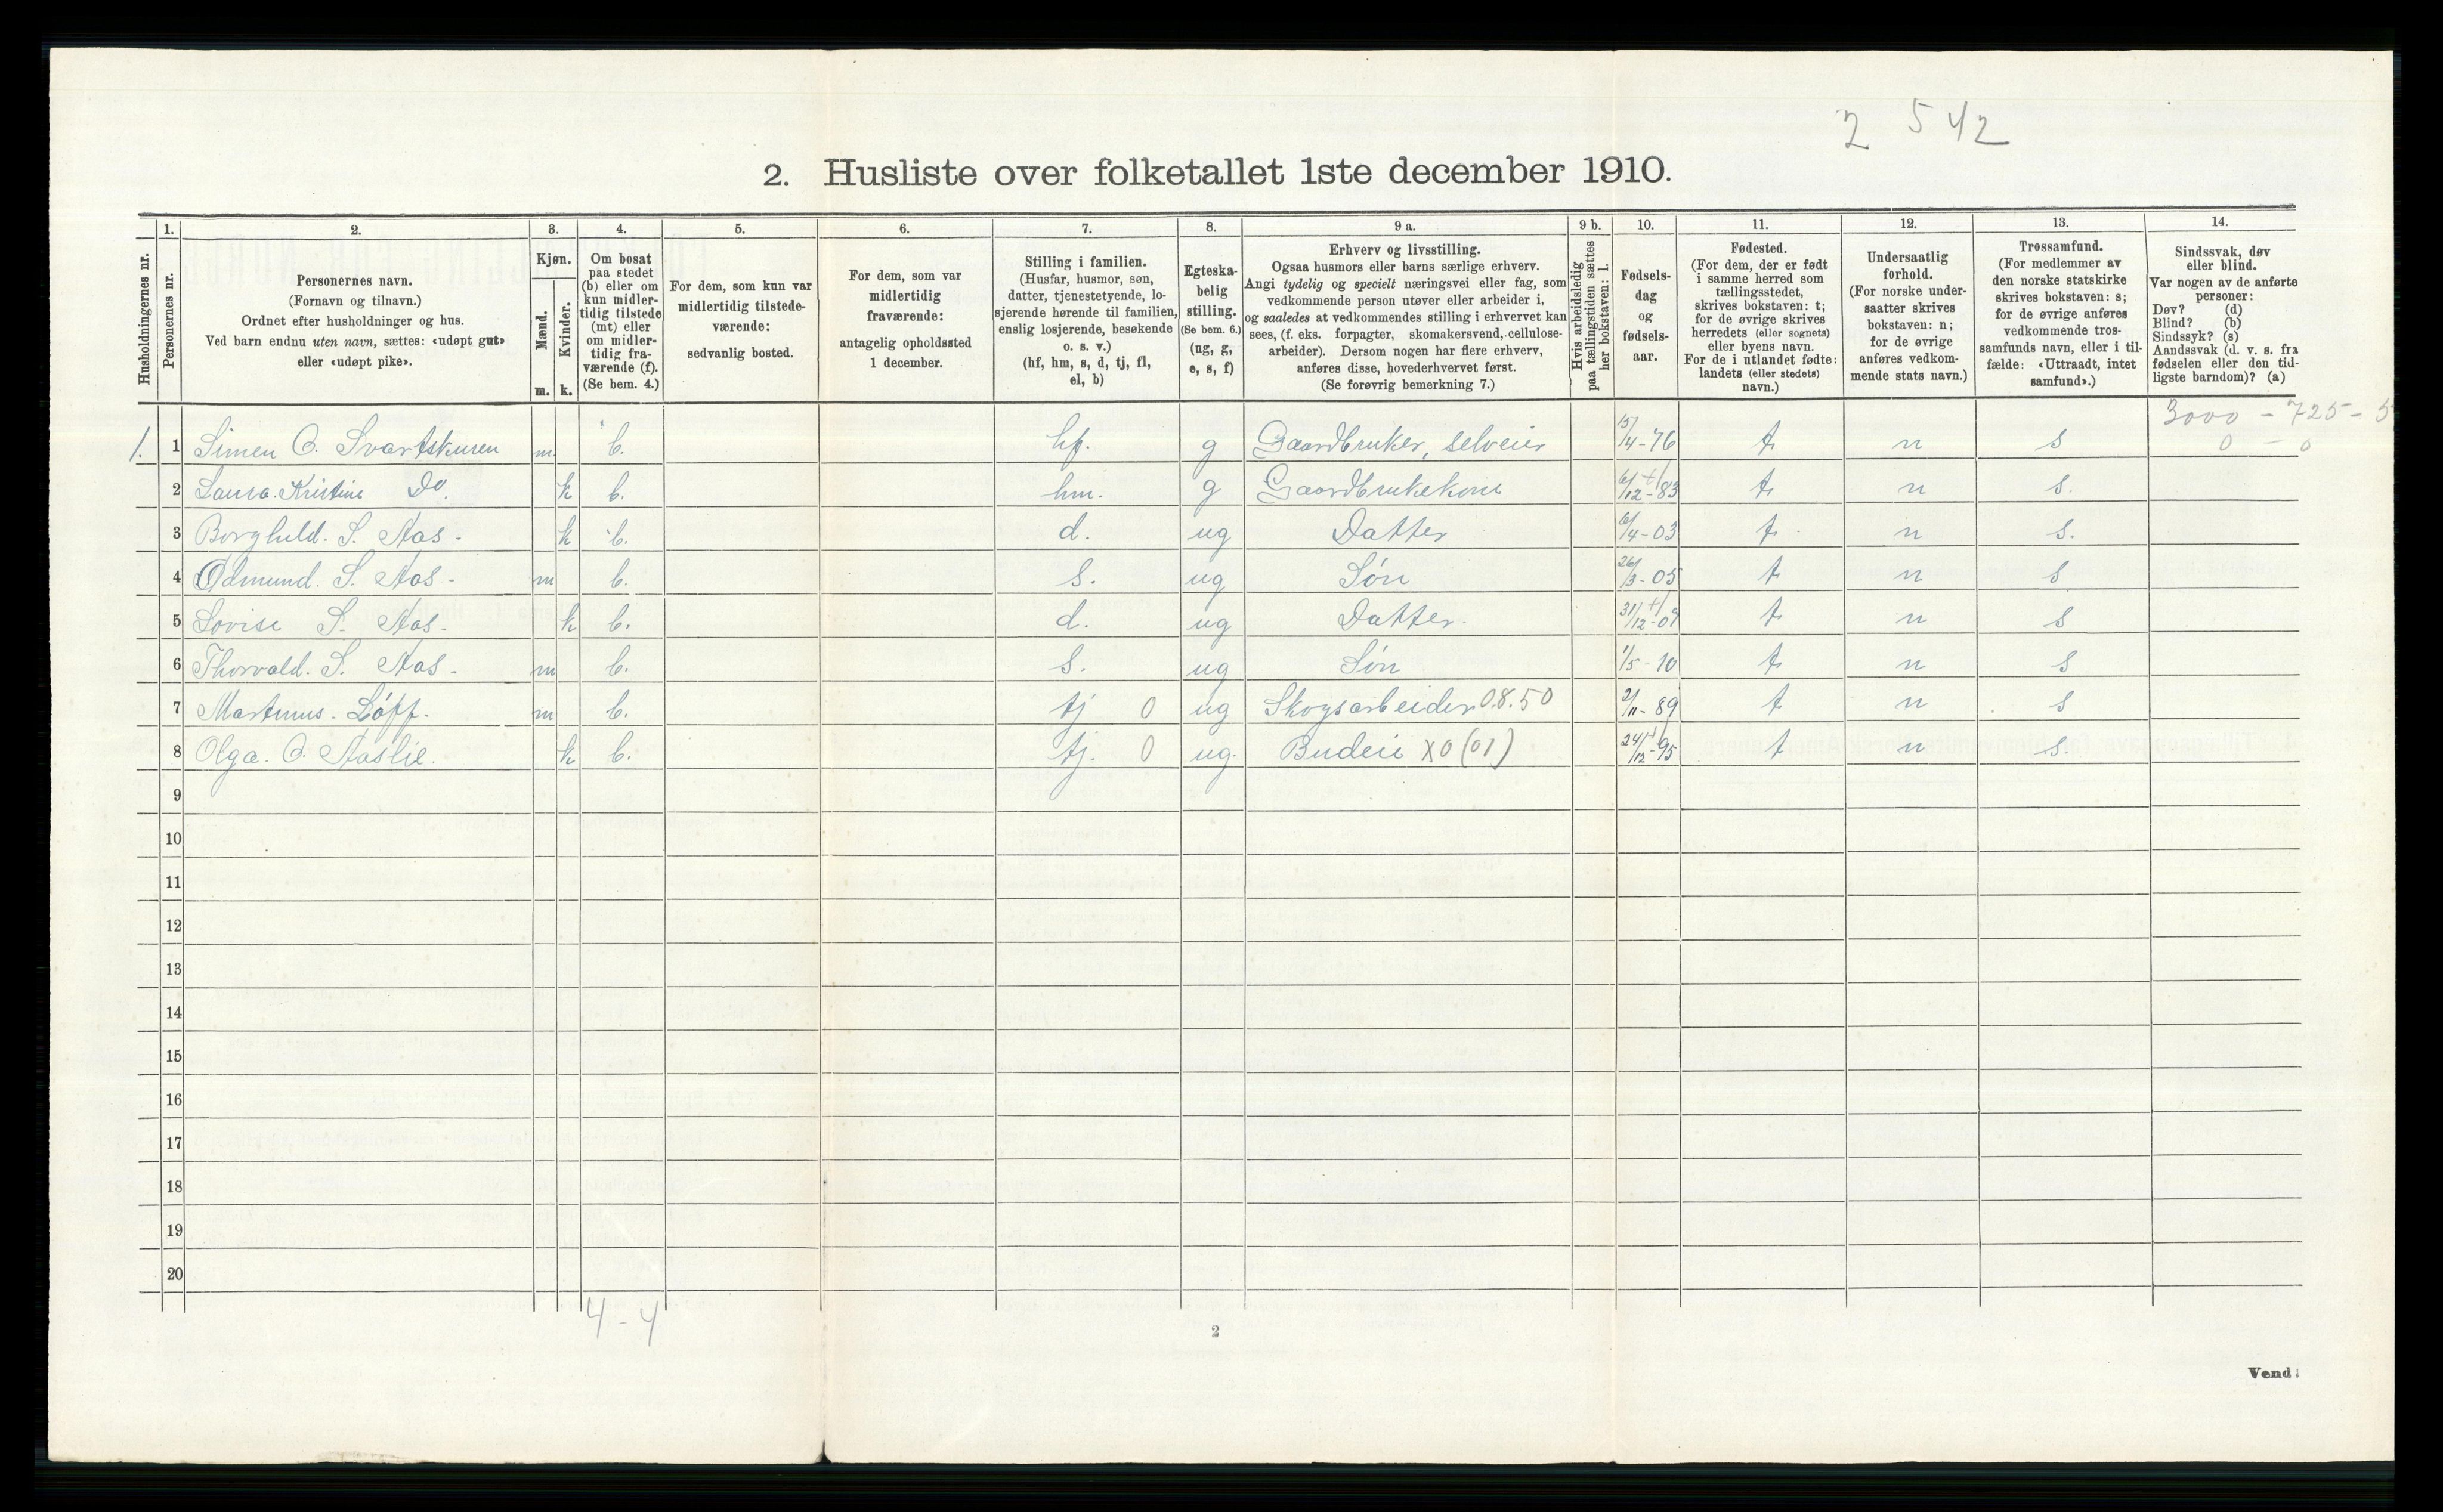 2 542
2. Husliste over folketallet 1ste december 1910.
Husholdningernes nr.
1. Personernes nr.
2. Personernes navn. (Fornavn og tilnavn.) Ordnet efter husholdninger og hus. Ved barn endnu uten navn, sættes: «udøpt gut» eller «udøpt pike».
3. Kjøn. Mænd. m. Kvinder. k.
4. Om bosat paa stedet (b) eller om kun midlertidig tilstede (mt) eller om midlertidig fraværende (f). (Se bem. 4.)
5. For dem, som kun var midlertidig tilstedeværende: sedvanlig bosted.
6. For dem, som var midlertidig fraværende: antagelig opholdssted 1 december.
7. Stilling i familien. (Husfar, husmor, søn, datter, tjenestetyende, losjerende hørende til familien, enslig losjerende, besøkende o. s. v.) (hf, hm, s, d, tj, fl, el, b)
8. Egteskabelig stilling. (Se bem. 6.) (ug, g, e, s, f)
9 a. Erhverv og livsstilling. Ogsaa husmors eller barns særlige erhverv. Angi tydelig og specielt næringsvei eller fag, som vedkommende person utøver eller arbeider i, og saaledes at vedkommendes stilling i erhvervet kan sees, (f. eks. forpagter, skomakersvend, cellulosearbeider). Dersom nogen har flere erhverv, anføres disse, hovederhvervet først. (Se forøvrig bemerkning 7.)
9 b. Hvis arbeidsledig paa tællingstiden sættes her bokstaven: l.
10. Fødselsdag og fødselsaar.
11. Fødested. (For dem, der er født i samme herred som tællingsstedet, skrives bokstaven: t; for de øvrige skrives herredets (eller sognets) eller byens navn. For de i utlandet fødte: landets (eller stedets) navn.)
12. Undersaatlig forhold. (For norske undersaatter skrives bokstaven: n; for de øvrige anføres vedkommende stats navn.)
13. Trossamfund. (For medlemmer av den norske statskirke skrives bokstaven: s; for de øvrige anføres vedkommende trossamfunds navn, eller i tilfælde: «Uttraadt, intet samfund».)
14. Sindssvak, døv eller blind. Var nogen av de anførte personer: Døv? (d) Blind? (b) Sindssyk? (s) Aandssvak (d. v. s. fra fødselen eller den tidligste barndom)? (a)
3000 - 725 - 5
1. 1 Simen O. Svartskuren m b. hf. g Gaardbruker, selveier 15/4-76 t n s 0 - 0
2 Laura Kristine Do. k b. hm. g Gaardbrukekone 6/12-83 t n s.
3 Borghild. S. Aas - k b. d. ug Datter 6/4-03 t n s.
4 Odmund. S. Aas - m b. s. ug Søn 26/3-05 t n s
5 Lovise S. Aas - k b. d. ug Datter 31/12-07 t n s
6 Thorvald. S. Aas - m b. s. ug Søn 1/5-10 t n s
7 Martinus. Løff. m b. tj 0 ug Skogsarbeider 08.50 2/11-89 t n s
8 Olga. O. Aaslie. k b. tj. 0 ug. Budeie X0 (01) 24/12-95 t n s.
9
10
11
12
13
14
15
16
17
18
19
20
4 - 4
2
Vend!